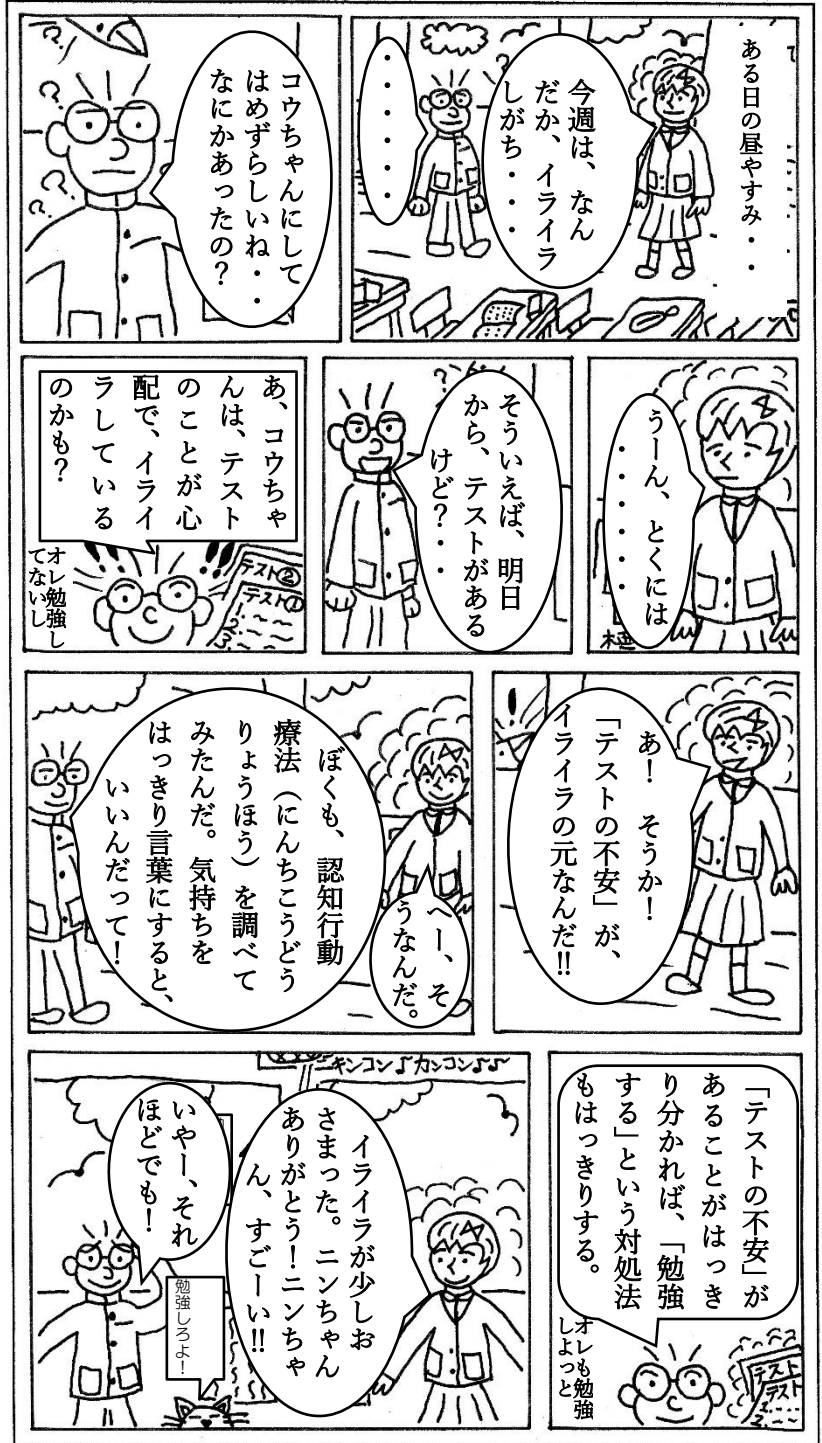 ある日の昼やすみ・・
今週は、なん
だか、イライラ
しがち・・・
・・・・・・
コウちゃんにして
はめずらしいね・・
なにかあったの？
うーん、とくには
・・・・・・
そういえば、明日
から、テストがある
けど？・・
あ、コウちゃ
んは、テスト
のことが心
配で、イライ
ラしている
のかも？
テスト②
テスト①
1.
2.
3.
オレ勉強し
てないし
あ！　そうか！
「テストの不安」が、
イライラの元なんだ!!
へー、そ
うなんだ。
ぼくも、認知行動
療法（にんちこうどう
りょうほう）を調べて
みたんだ。気持ちを
はっきり言葉にすると、
いいんだって！
「テストの不安」が
あることがはっき
り分かれば、「勉強
する」という対処法
もはっきりする。
テスト
テスト
オレも勉強
しよっと
キンコン♪カンコン♪♪
イライラが少しお
さまった。ニンちゃん
ありがとう！ニンちゃ
ん、すごーい!!
いやー、それ
ほどでも！
勉強しろよ！